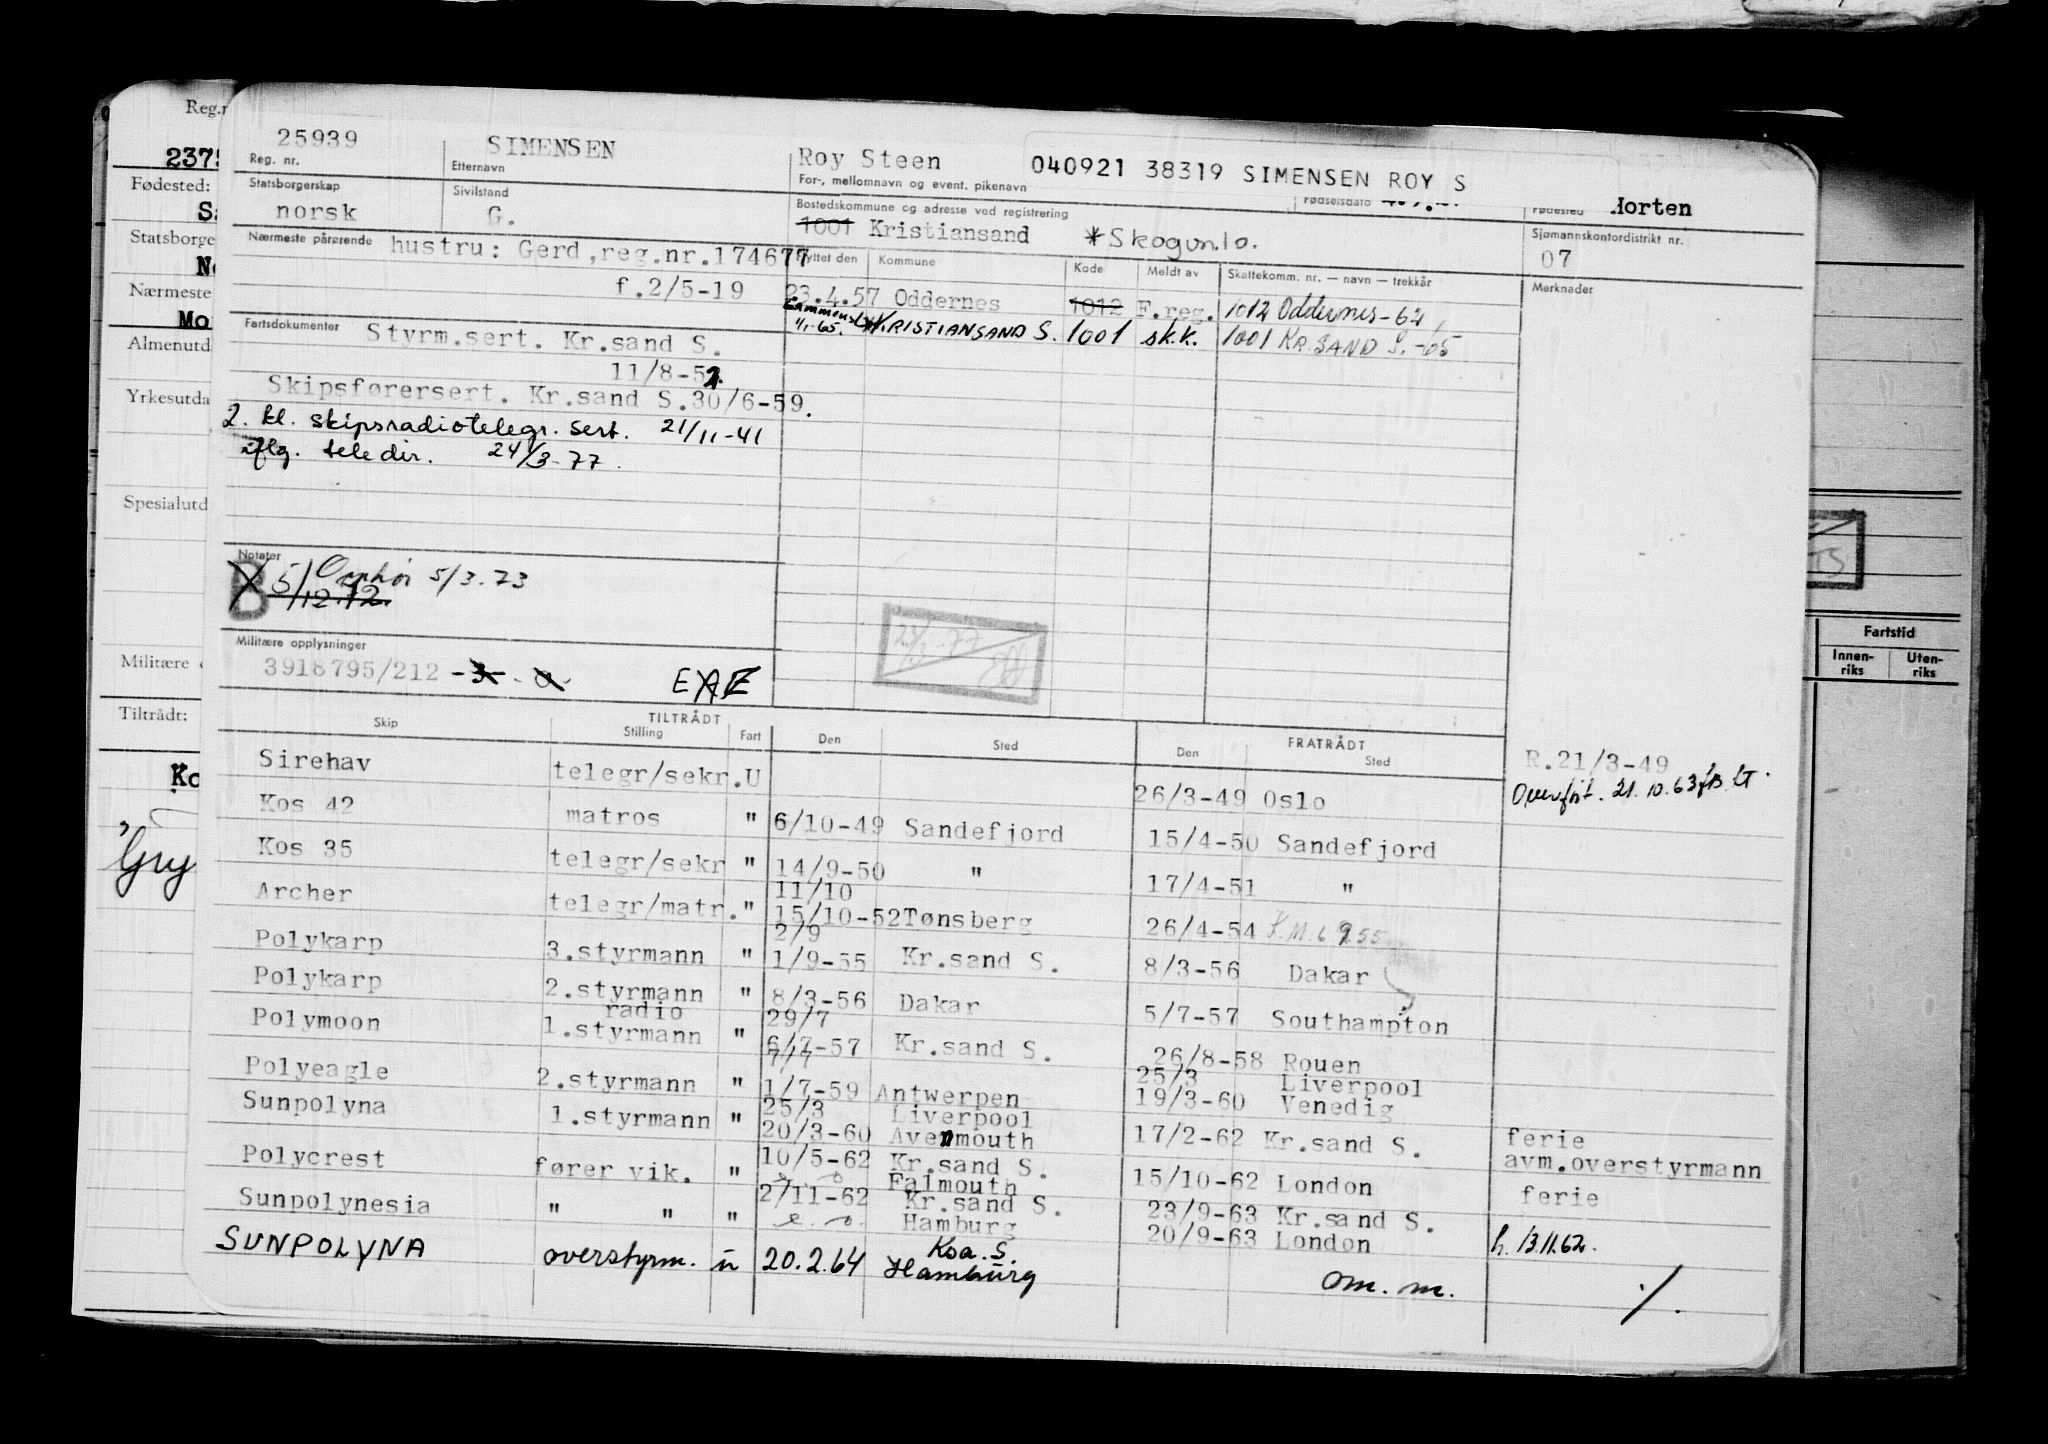 Reg.n
2375
Fødested:
Sa
Statsborge
No
Nærmeste
Mo
Almenutd
Yrkesutda
Spesialutd
Militære
Tiltrådt:
Ko
Gry
25939 SIMENSEN Roy Steen 040921 38319 SIMENSEN ROY S
Reg. nr. Etternavn For-, mellomnavn og event. pikenavn Fødselsdato Fødested Horten
Statsborgerskap Sivilstand Bostedskommune og adresse ved registrering Sjømannskontordistrikt nr.
norsk G. 1001 Kristiansand *Skogvn.10. 07
Nærmeste pårørende hustru: Gerd,reg.nr.174677 Flyttet den Kommune Kode Meldt av Skattekomm. nr. — navn — trekkår Merknader
f.2/5-19 23.4.57 Oddernes 1012 F.reg. 1012 Oddernes-64
Fartsdokumenter Styrm.sert. Kr.sand S. 1/1-65. KRISTIANSAND S. 1001 sk.k. 1001 KR.SAND S.-65
11/8-52.
Skipsførersert. Kr.sand S.30/6-59.
2. kl. skipsradiotelegr. sert. 21/11-41
iflg. teledir. 24/3-77.
Notater
B 5/12.72. Opphør 5/3.73
24/3-77
Militære opplysninger
3918795/212 -3- EAZ
Skip TILTRÅDT Stilling Fart Den Sted FRATRÅDT Den Sted
R.21/3-49
Overført. 21.10.63
Sirehav telegr/sekr.U 26/3-49 Oslo
Kos 42 matros " 6/10-49 Sandefjord 15/4-50 Sandefjord
Kos 35 telegr/sekr " 14/9-50 " 17/4-51 "
11/10
Archer telegr/matr." 15/10-52 Tønsberg 26/4-54
2/9
Polykarp 3.styrmann " 1/9-55 Kr.sand S. 8/3-56 Dakar
Polykarp 2.styrmann " 8/3-56 Dakar 5/7-57 Southampton
radio 29/7
Polymoon 1.styrmann " 6/7-57 Kr.sand S. 26/8-58 Rouen
25/3 Liverpool
Polyeagle 2.styrmann " 1/7-59 Antwerpen 19/3-60 Venedig
25/3 Liverpool
Sunpolyna 1.styrmann " 20/3-60 Avenmouth 17/2-62 Kr.sand S. ferie
avm.overstyrmann
Polycrest fører vik. " 10/5-62 Kr.sand S. 15/10-62 London
Falmouth
ferie
Sunpolynesia " " " 2/11-62 Kr.sand S. 23/9-63 Kr.sand S.
Hamburg 20/9-63 London h. 13.11.62.
SUNPOLYNA overstyrm. u 20.2.64 Hamburg om. m. ./.
Fartstid
Innen-riks Uten-riks